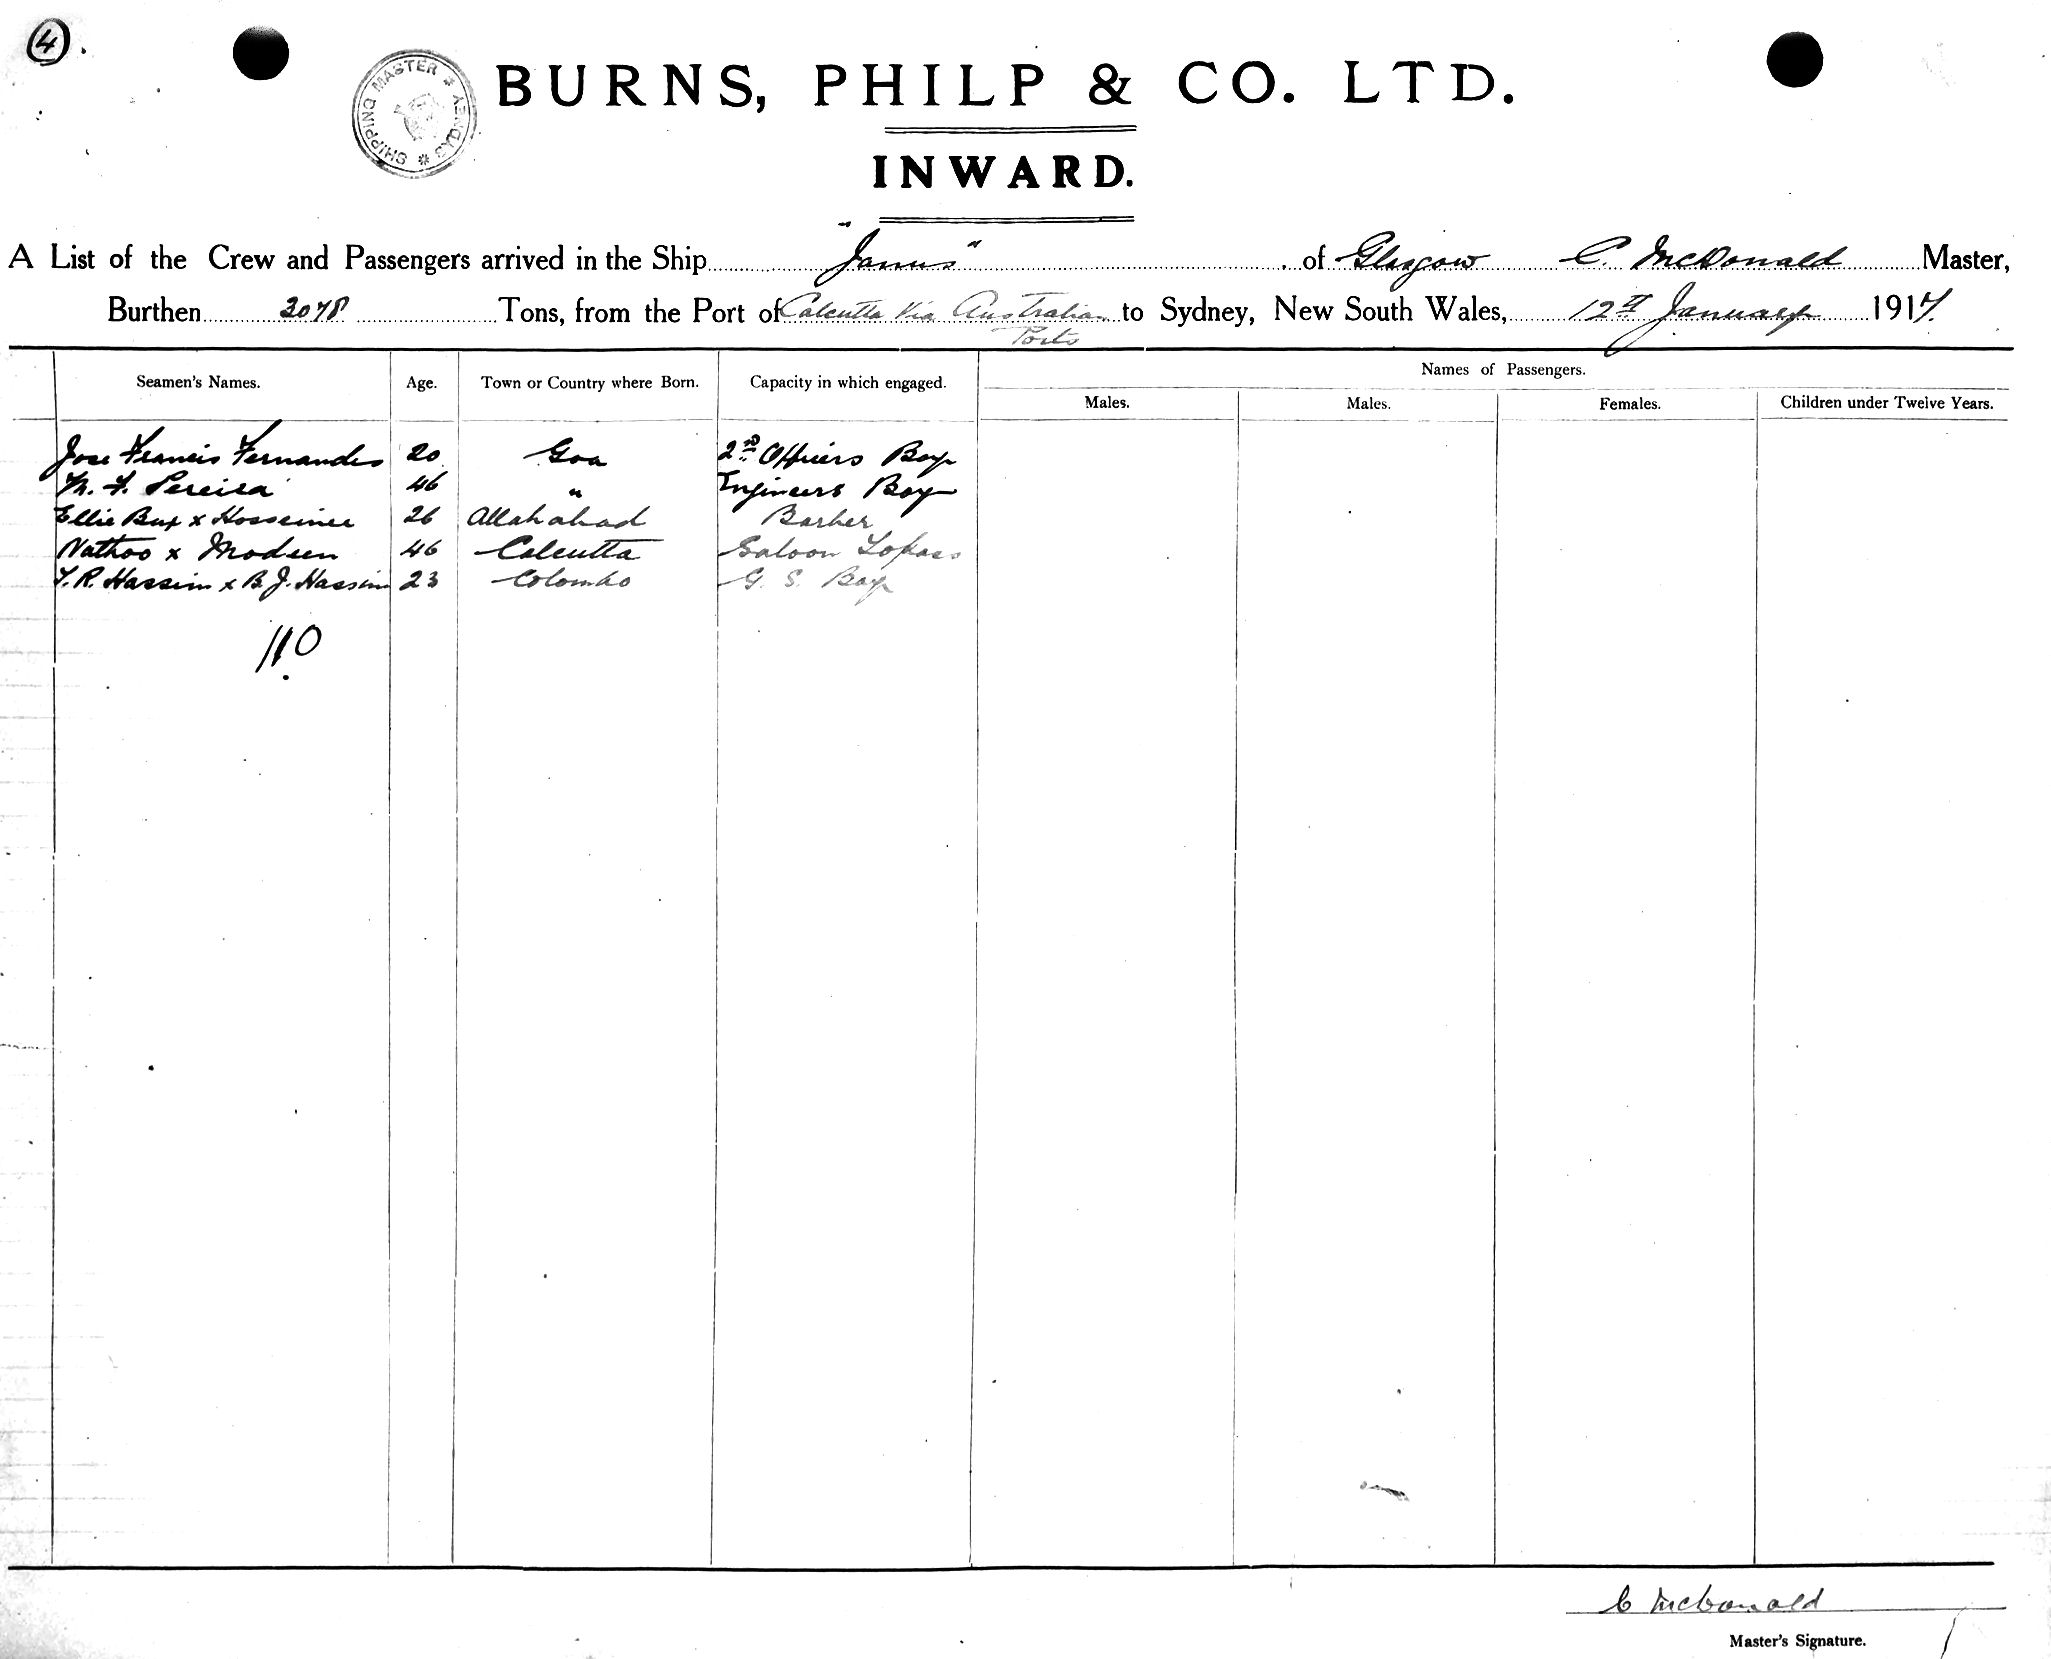 4
SHIPPING MASTER * SYDNEY *
BURNS, PHILP & CO. LTD.
INWARD.
A List of the Crew and Passengers arrived in the Ship "Janus" of Glasgow C. McDonald Master,
Burthen 3078 Tons, from the Port of Calcutta via Australian Ports to Sydney, New South Wales, 12th January 1917.
Names of Passengers.
Seamen's Names. Age. Town or Country where Born. Capacity in which engaged. Males. Males. Females. Children under Twelve Years.
Jose Francis Fernandes 20 Goa 2nd Officers Boy
F. Pereira 46 " Engineers Boy
Ellie Bux x Hosseinee 26 Allahabad Barber
Nathoo x Modeen 46 Calcutta Saloon Topass
R. Hassim x B. J. Hassim 23 Colombo G. S. Boy
110
C McDonald
Master's Signature.